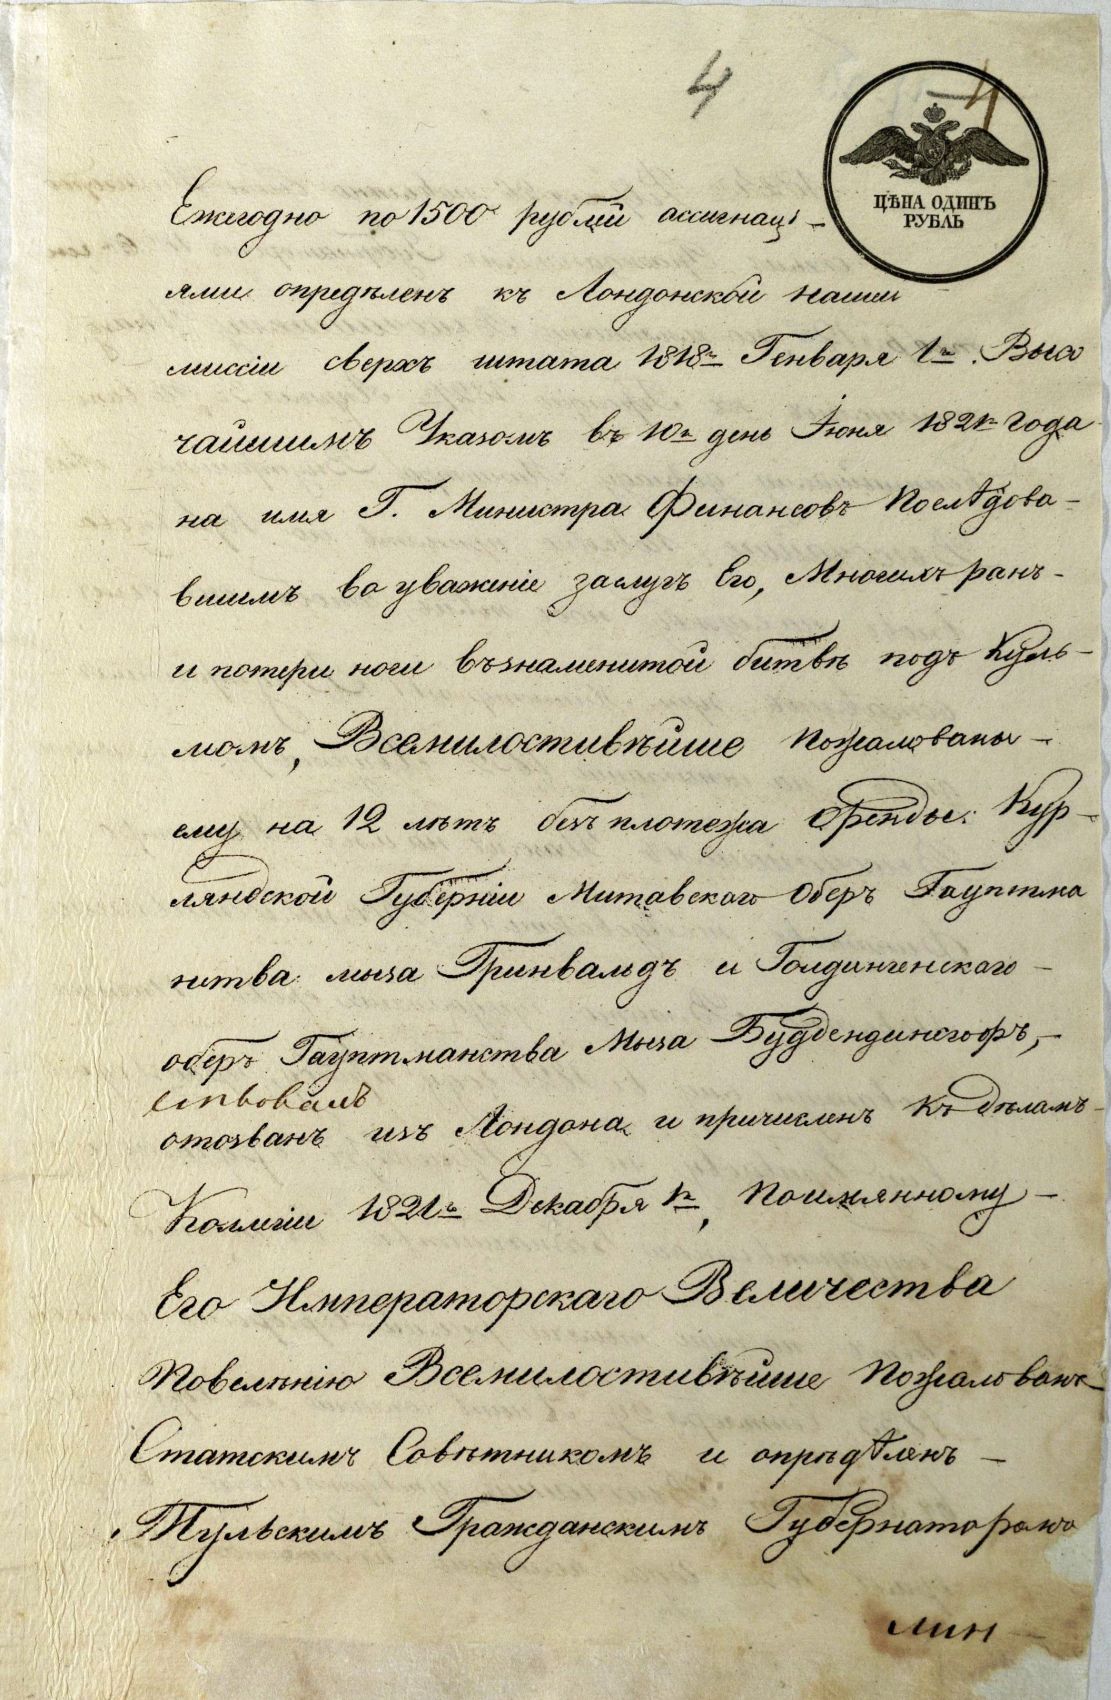 4
4
ЦѢНА ОДИНЪ
РУБЛЬ
Ежегодно по 1500 рублей ассигнаці-
ями опредѣленъ къ Лондонской нашей
миссіи сверхъ штата 1818го Генваря 1го. Высо
чайшимъ Указомъ въ 10й день Іюня 1821го Года
на имя Г. Министра Финансовъ Послѣдова-
вшимъ во уваженіе заслугъ Его, Многихъ ранъ-
и потери ноги въ знаменитой битвѣ подъ Куль-
момъ, Всемилостивѣйше пожалованы-
ему на 12 лѣтъ безъ плотежа Аренды: Кур-
ляндской Губерніи Митавскаго Оберъ Гауптма
нства мыза Гринвальдъ и Голдингенскаго-
оберъ Гауптманства Мыза Будбендинсгофъ,-
отозванъ изъ Лондона и причисленъ къ дѣламъ-
Коллегіи 1821го Декабря 1го, Поимянному-
Его Императорскаго Величества
Повелѣнію Всемилостивѣйше Пожалованъ-
Статскимъ Совѣтникомъ и опрѣдѣленъ-
Тульскимъ Гражданскимъ Губернаторомъ
мин-